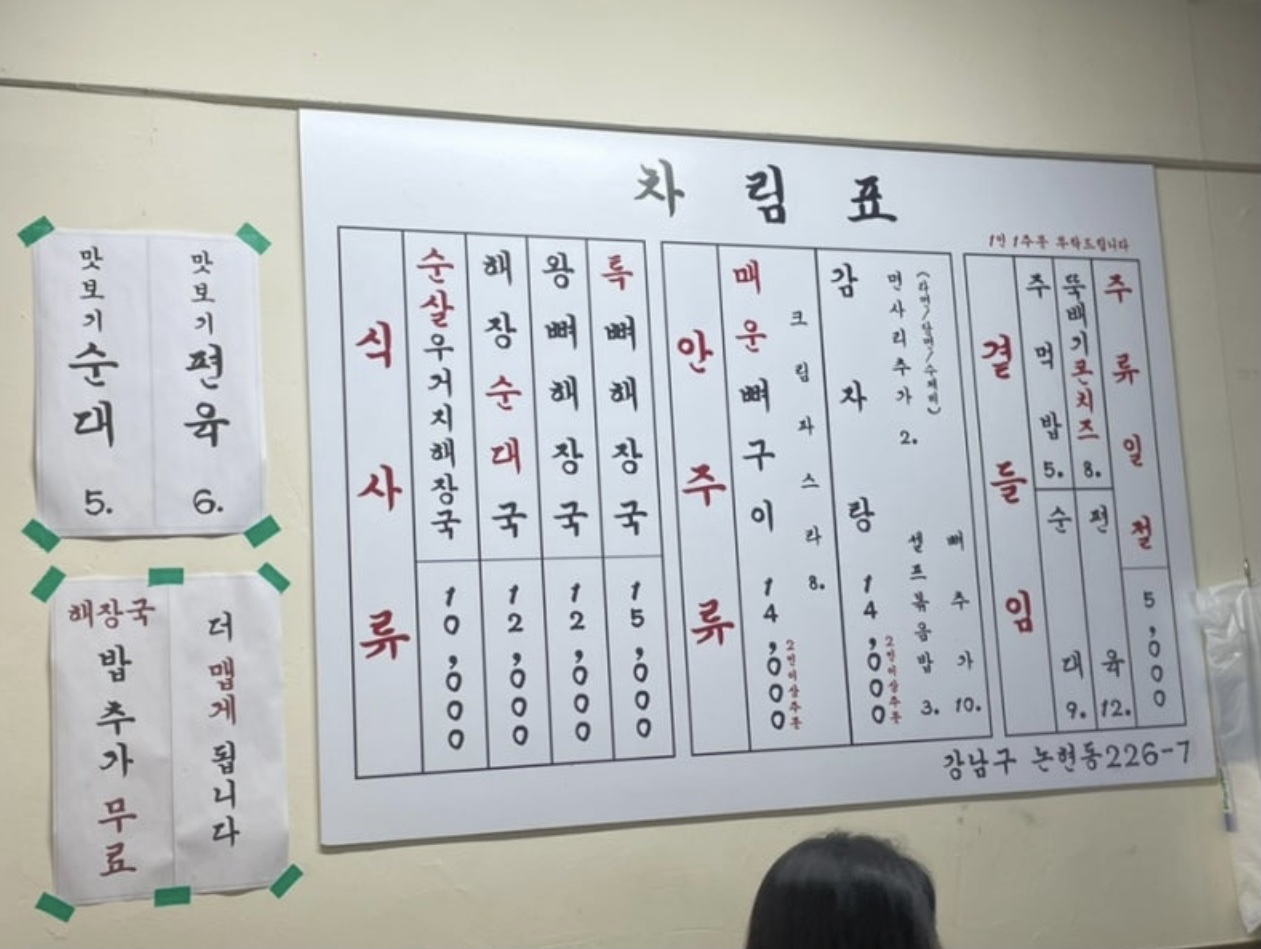 맛보기순대 5.
맛보기편육 6.
해장국
밥추가무료
더맵게됩니다
차림표
식사류
순살우거지해장국 10,000
해장순대국 12,000
왕뼈해장국 12,000
특뼈해장국 15,000
안주류
매운뼈구이 14,000
2인이상주문
크림파스타 8.
감자랑 14,000
2인이상주문
면사리추가 2.
(라면/당면/수제비)
셀프볶음밥 3.
뼈추가 10.
1인 1주문 부탁드립니다
곁들임
주먹밥 5.
순대 9.
뚝배기콘치즈 8.
편육 12.
주류일절 5,000
강남구 논현동 226-7